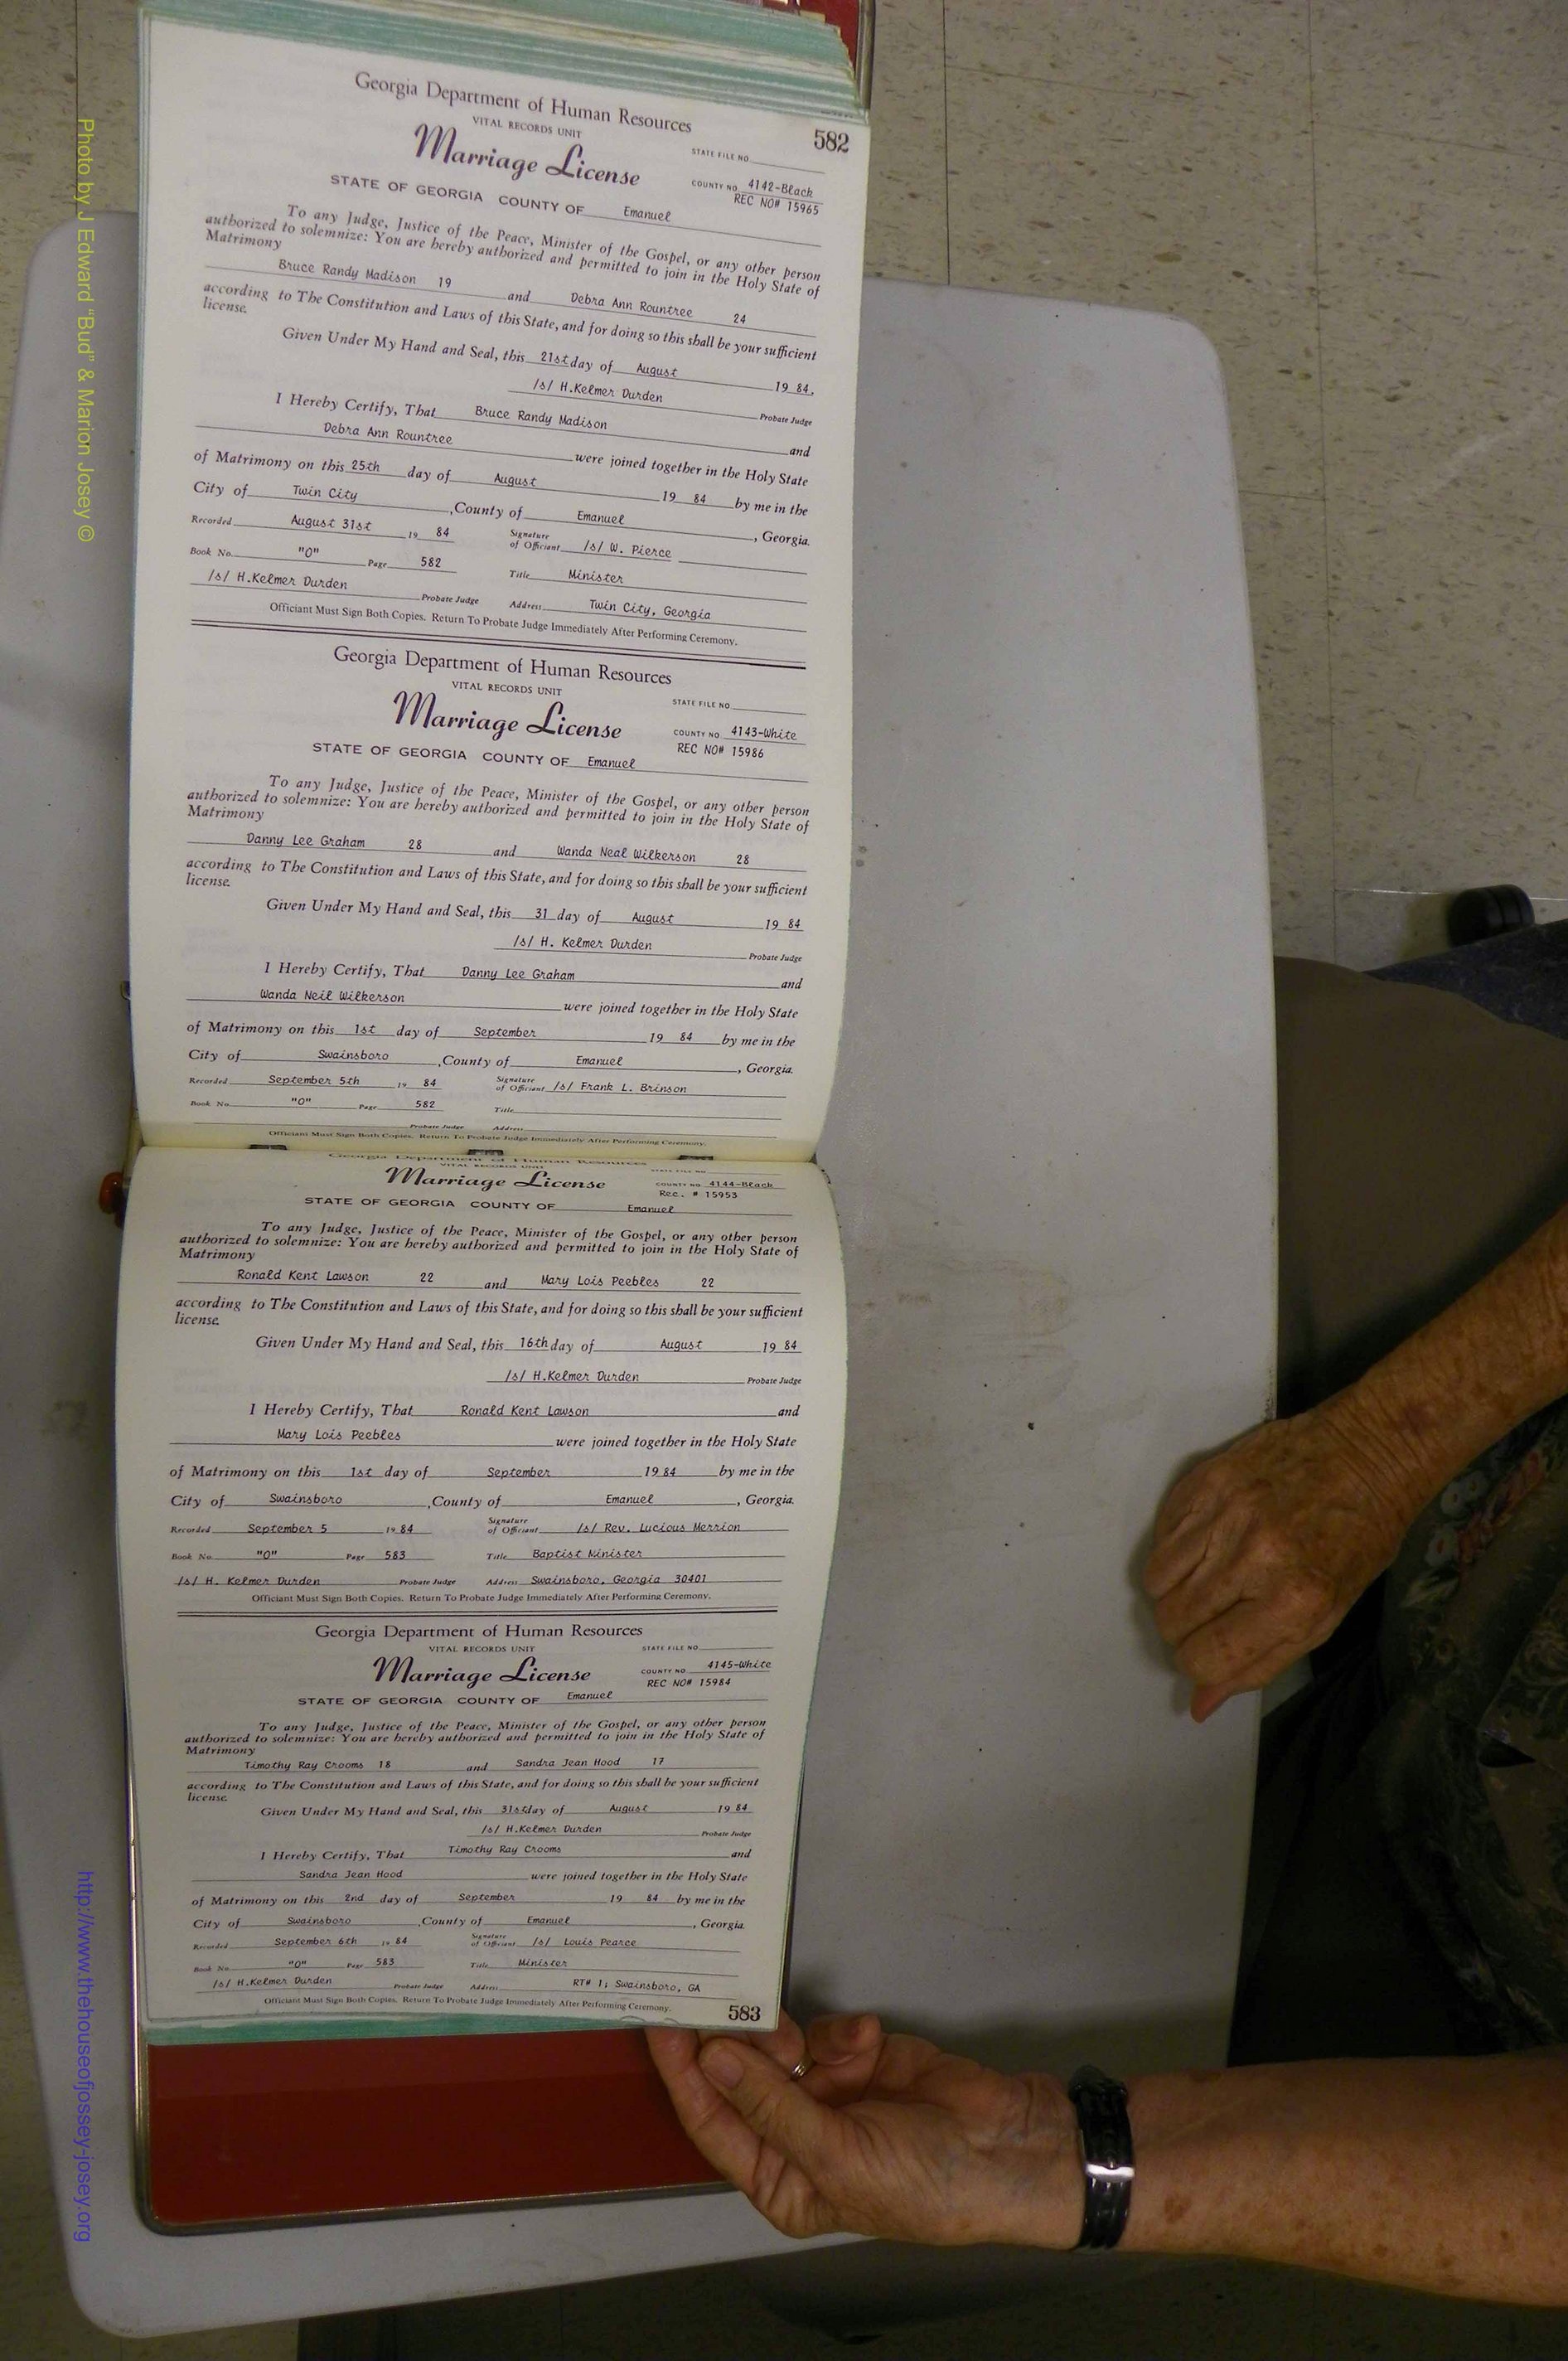 Georgia Department of Human Resources
VITAL RECORDS UNIT
582
Marriage License
STATE FILE NO.
COUNTY NO. 4142-Black
REC NO# 15965
STATE OF GEORGIA COUNTY OF Emanuel
To any Judge, Justice of the Peace, Minister of the Gospel, or any other person
authorized to solemnize: You are hereby authorized and permitted to join in the Holy State of
Matrimony
Bruce Randy Madison 19 and Debra Ann Rountree 24
according to The Constitution and Laws of this State, and for doing so this shall be your sufficient
license.
Given Under My Hand and Seal, this 21st day of August 19 84.
/s/ H.Kelmer Durden Probate Judge
I Hereby Certify, That Bruce Randy Madison and
Debra Ann Rountree were joined together in the Holy State
of Matrimony on this 25th day of August 19 84 by me in the
City of Twin City, County of Emanuel, Georgia.
Recorded August 31st 19 84 Signature of Officiant /s/ W. Pierce
Book No. "O" Page 582 Title Minister
/s/ H.Kelmer Durden Probate Judge Address Twin City, Georgia
Officiant Must Sign Both Copies. Return To Probate Judge Immediately After Performing Ceremony.
Georgia Department of Human Resources
VITAL RECORDS UNIT
Marriage License
STATE FILE NO.
COUNTY NO 4143-White
REC NO# 15986
STATE OF GEORGIA COUNTY OF Emanuel
To any Judge, Justice of the Peace, Minister of the Gospel, or any other person
authorized to solemnize: You are hereby authorized and permitted to join in the Holy State of
Matrimony
Danny Lee Graham 28 and Wanda Neal Wilkerson 28
according to The Constitution and Laws of this State, and for doing so this shall be your sufficient
license.
Given Under My Hand and Seal, this 31 day of August 19 84
/s/ H. Kelmer Durden Probate Judge
I Hereby Certify, That Danny Lee Graham and
Wanda Neil Wilkerson were joined together in the Holy State
of Matrimony on this 1st day of September 19 84 by me in the
City of Swainsboro, County of Emanuel, Georgia.
Recorded September 5th 19 84 Signature of Officiant /s/ Frank L. Brinson
Book No. "O" Page 582 Title
Probate Judge Address
Officiant Must Sign Both Copies. Return To Probate Judge Immediately After Performing Ceremony.
Georgia Department of Human Resources
VITAL RECORDS UNIT
STATE FILE NO.
Marriage License
COUNTY NO. 4144-Black
Rec. # 15953
STATE OF GEORGIA COUNTY OF Emanuel
To any Judge, Justice of the Peace, Minister of the Gospel, or any other person
authorized to solemnize: You are hereby authorized and permitted to join in the Holy State of
Matrimony
Ronald Kent Lawson 22 and Mary Lois Peebles 22
according to The Constitution and Laws of this State, and for doing so this shall be your sufficient
license.
Given Under My Hand and Seal, this 16th day of August 19 84
/s/ H.Kelmer Durden Probate Judge
I Hereby Certify, That Ronald Kent Lawson and
Mary Lois Peebles were joined together in the Holy State
of Matrimony on this 1st day of September 19 84 by me in the
City of Swainsboro, County of Emanuel, Georgia.
Recorded September 5 19 84 Signature of Officiant /s/ Rev. Lucious Merrion
Book No. "O" Page 583 Title Baptist Minister
/s/ H. Kelmer Durden Probate Judge Address Swainsboro, Georgia 30401
Officiant Must Sign Both Copies. Return To Probate Judge Immediately After Performing Ceremony.
Georgia Department of Human Resources
VITAL RECORDS UNIT
STATE FILE NO.
Marriage License
COUNTY NO 4145-White
REC NO# 15984
STATE OF GEORGIA COUNTY OF Emanuel
To any Judge, Justice of the Peace, Minister of the Gospel, or any other person
authorized to solemnize: You are hereby authorized and permitted to join in the Holy State of
Matrimony
Timothy Ray Crooms 18 and Sandra Jean Hood 17
according to The Constitution and Laws of this State, and for doing so this shall be your sufficient
license.
Given Under My Hand and Seal, this 31st day of August 19 84
/s/ H.Kelmer Durden Probate Judge
I Hereby Certify, That Timothy Ray Crooms and
Sandra Jean Hood were joined together in the Holy State
of Matrimony on this 2nd day of September 19 84 by me in the
City of Swainsboro, County of Emanuel, Georgia.
Recorded September 6th 19 84 Signature of Officiant /s/ Louis Pearce
Book No. "O" Page 583 Title Minister
/s/ H.Kelmer Durden Probate Judge Address RT# 1; Swainsboro, GA
Officiant Must Sign Both Copies. Return To Probate Judge Immediately After Performing Ceremony.
583
Photo by J Edward "Bud" & Marion Josey ©
http://www.thehouseofjossey-josey.org